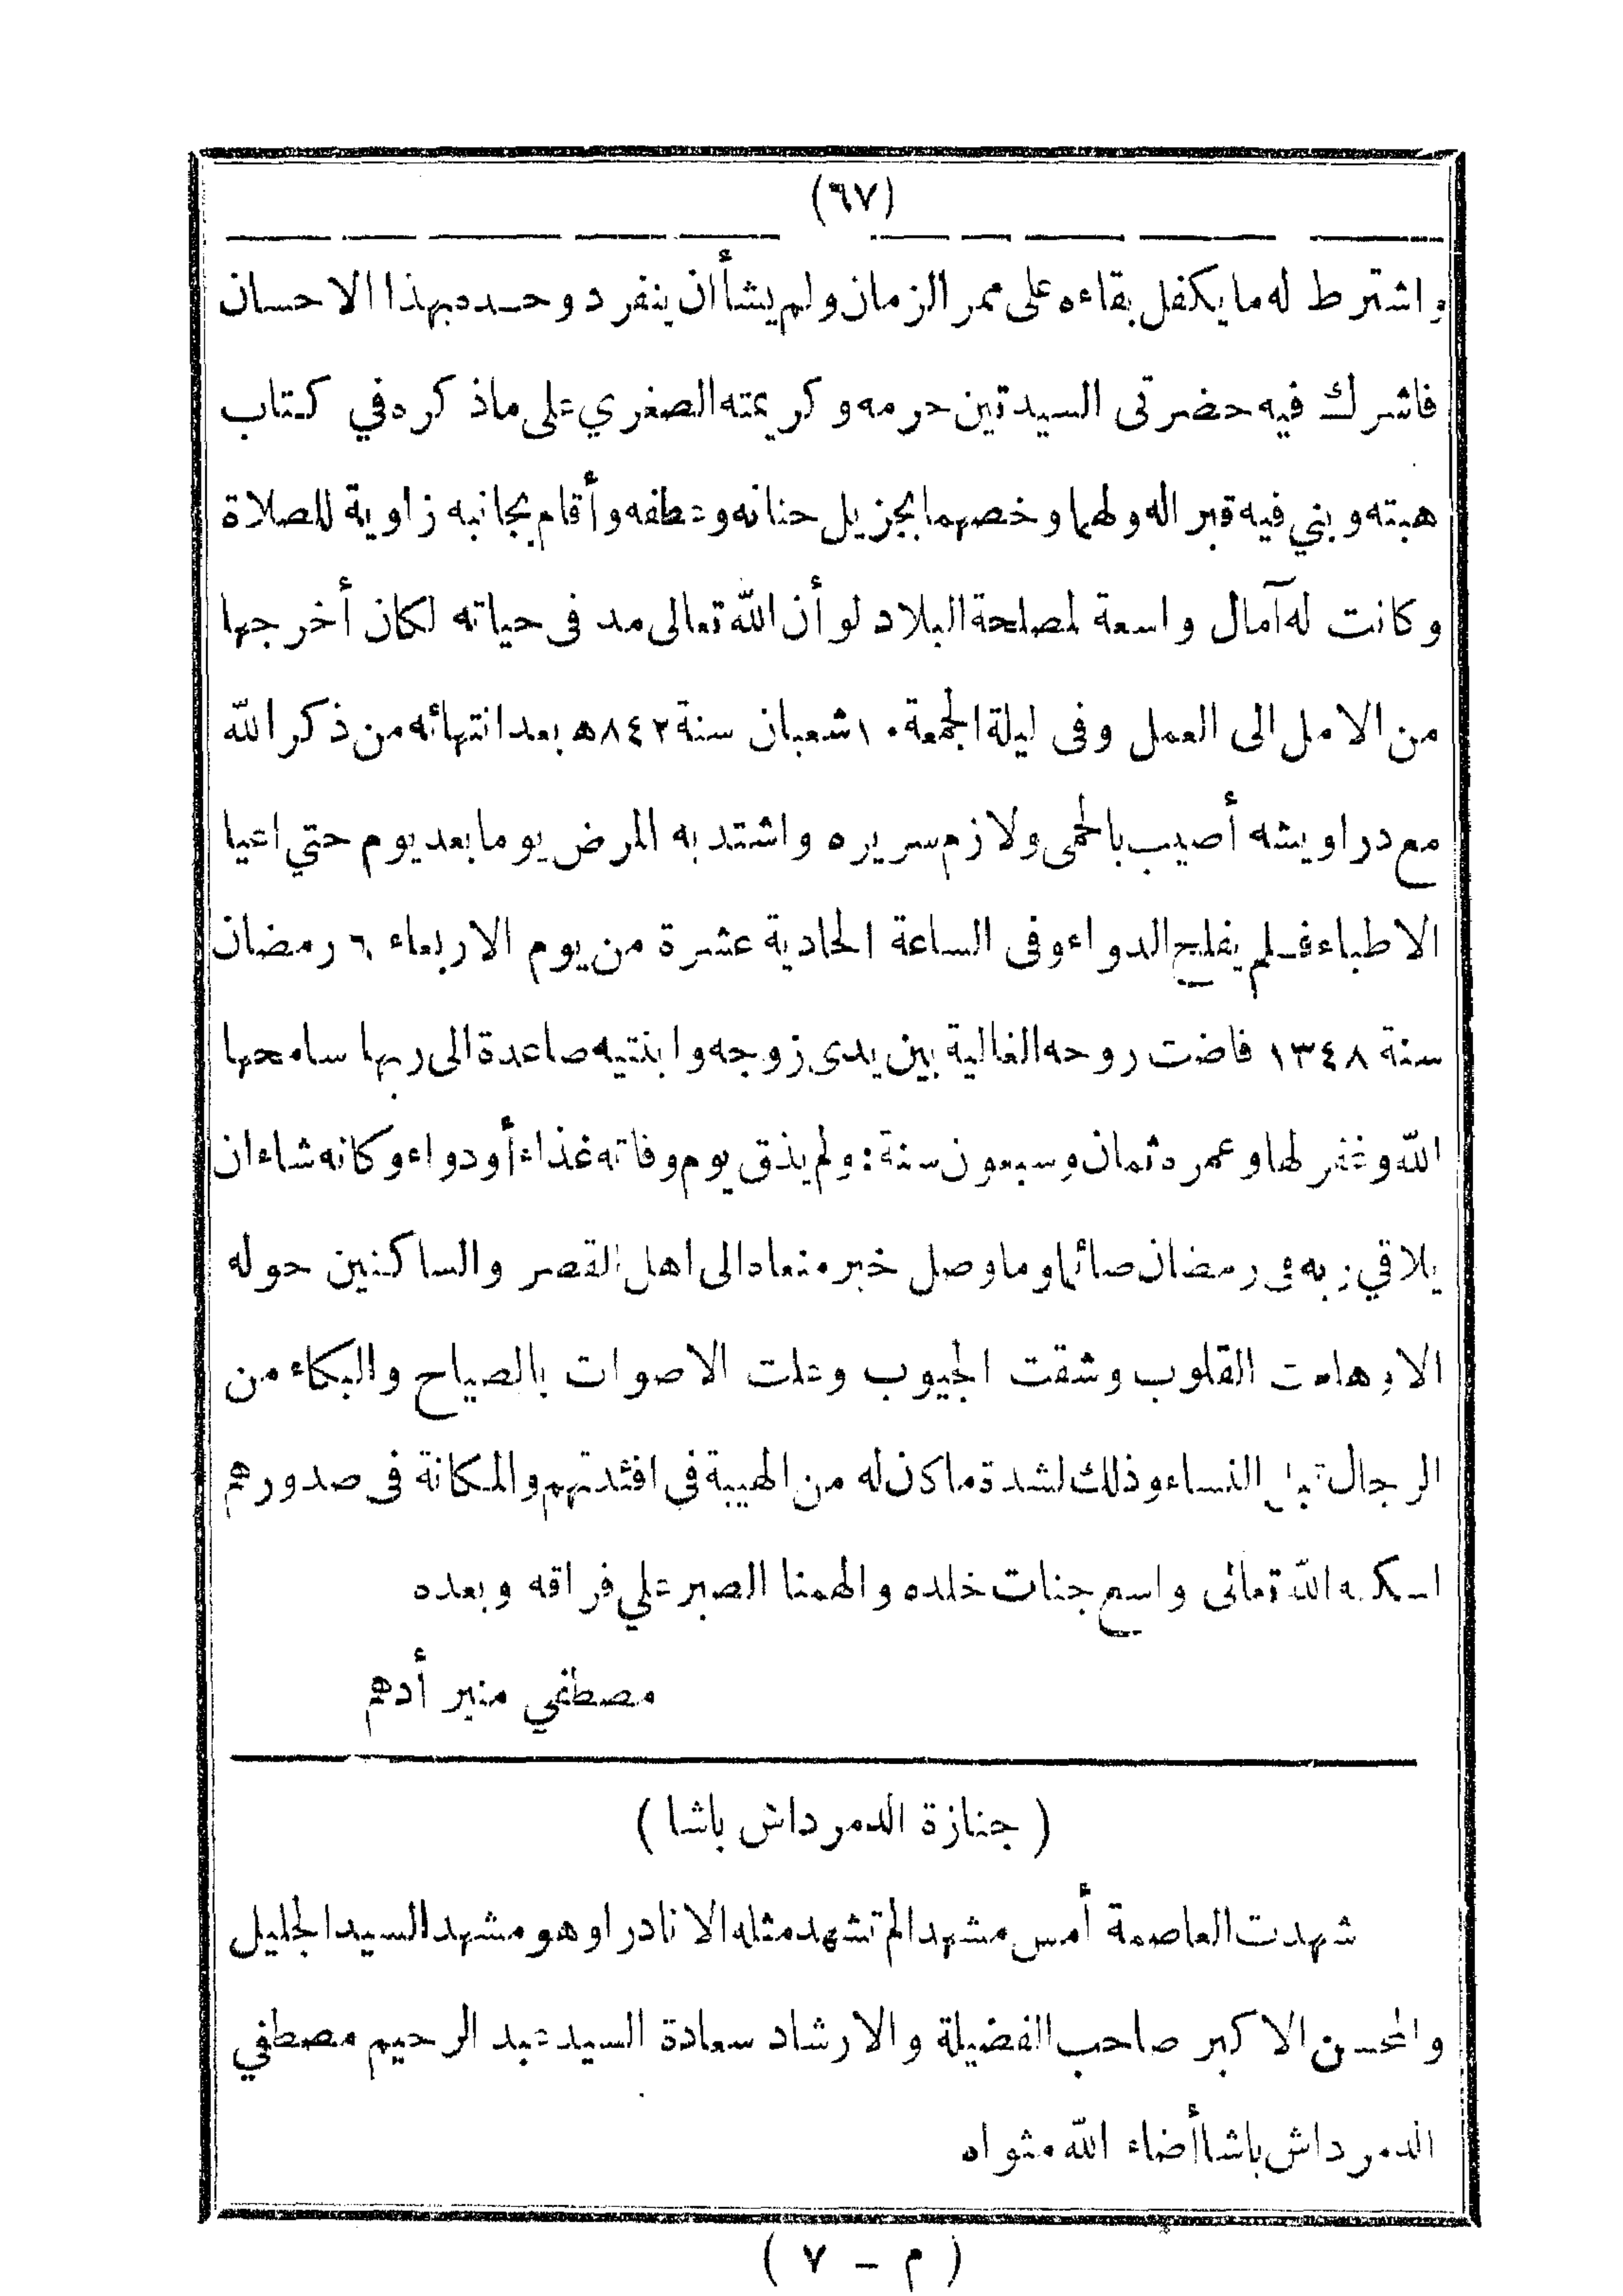 (٦٧)
واشترط له ما يكفل بقاءه على ممر الزمان ولم يشأ أن ينفرد وحده بهذا الاحسان
فاشرك فيه حضرتى السيدتين حرمه وكريمته الصغري على ماذكره في كتاب
هبته وبني فيه قبرا له ولهما وخصهما بجزيل حنانه وعطفه وأقام بجانبه زاوية للصلاة
وكانت له آمال واسعة لمصلحة البلاد لو أن الله تعالى مد فى حياته لكان أخرجها
من الامل الى العمل وفى ليلة الجمعة ١٠ شعبان سنة ٨٤٢ ه بعد انتهائه من ذكر الله
مع دراويشه أصيب بالحمى ولازم سريره واشتد به المرض يوما بعد يوم حتي اعيا
الاطباء فلم يفلح الدواء وفى الساعة الحادية عشرة من يوم الاربعاء ٦ رمضان
سنة ١٣٤٨ فاضت روحه الغالية بين يدى زوجه وابنتيه صاعدة الى ربها سامحها
الله وغفر لها وعمره ثمان وسبعون سنة : ولم يذق يوم وفاته غذاء أو دواء وكانه شاء ان
يلاقي ربه فى رمضان صائما وما وصل خبر منعاه الى اهل القصر والساكنين حوله
الا وهلعت القلوب وشقت الجيوب وعلت الاصوات بالصياح والبكاء من
الرجال قبل النساء وذلك لشدة ما كان له من الهيبة في افئدتهم والمكانة فى صدورهم
اسكنه الله تعالى واسع جنات خلده والهمنا الصبر علي فراقه وبعده
مصطفي منير أدهم
( جنازة الدمرداش باشا )
شهدت العاصمة أمس مشهدا لم تشهد مثله الا نادرا وهو مشهد السيد الجليل
والمحسن الاكبر صاحب الفضيلة والارشاد سعادة السيد عبد الرحيم مصطفي
الدمرداش باشا أضاء الله مثواه
( م – ٧ )